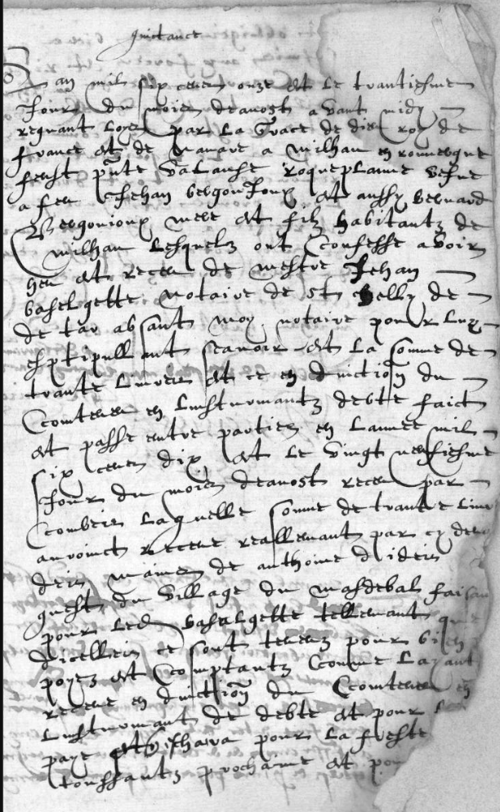 quictance
L'an mil six cens onze et le trantiesme
Jour du moien deaoust avant midy
regnant Loys par la Grace de dieu roy de
france et de navarre a milhau en rouuergue
feust pnte Valanse roqueplanne vefue
a feu Jehan bergonjoux et aussy bernard
Bergonioux mere et filz habitantz de
milhau lesquelz ont Confesse avoir
heu et receu de mestre Jehan
baselgette notaire de st chelly de
de tar absant moy notaire pour luy
sptipullant scavoir est la somme de
trante Livres et ce en diuction du
Contenu en Linstrumant debte faict
et passe entre parties en Lannee mil
six cens dix et le vingt neufiesme
Jour du moien deaoust receu par
Laquelle somme de trante Livres
receue reallemant par cy devant
des maines de anthoine
du village du masdebal faisant
pour led baselgette tellemant que
dicelles ce sont tenus pour bien
poyez et Comptantz Comme Layant
receue en diuction du Contenu en
Linstrumant de debte et pour
paye pour la feste
toussantz prochaine et pour